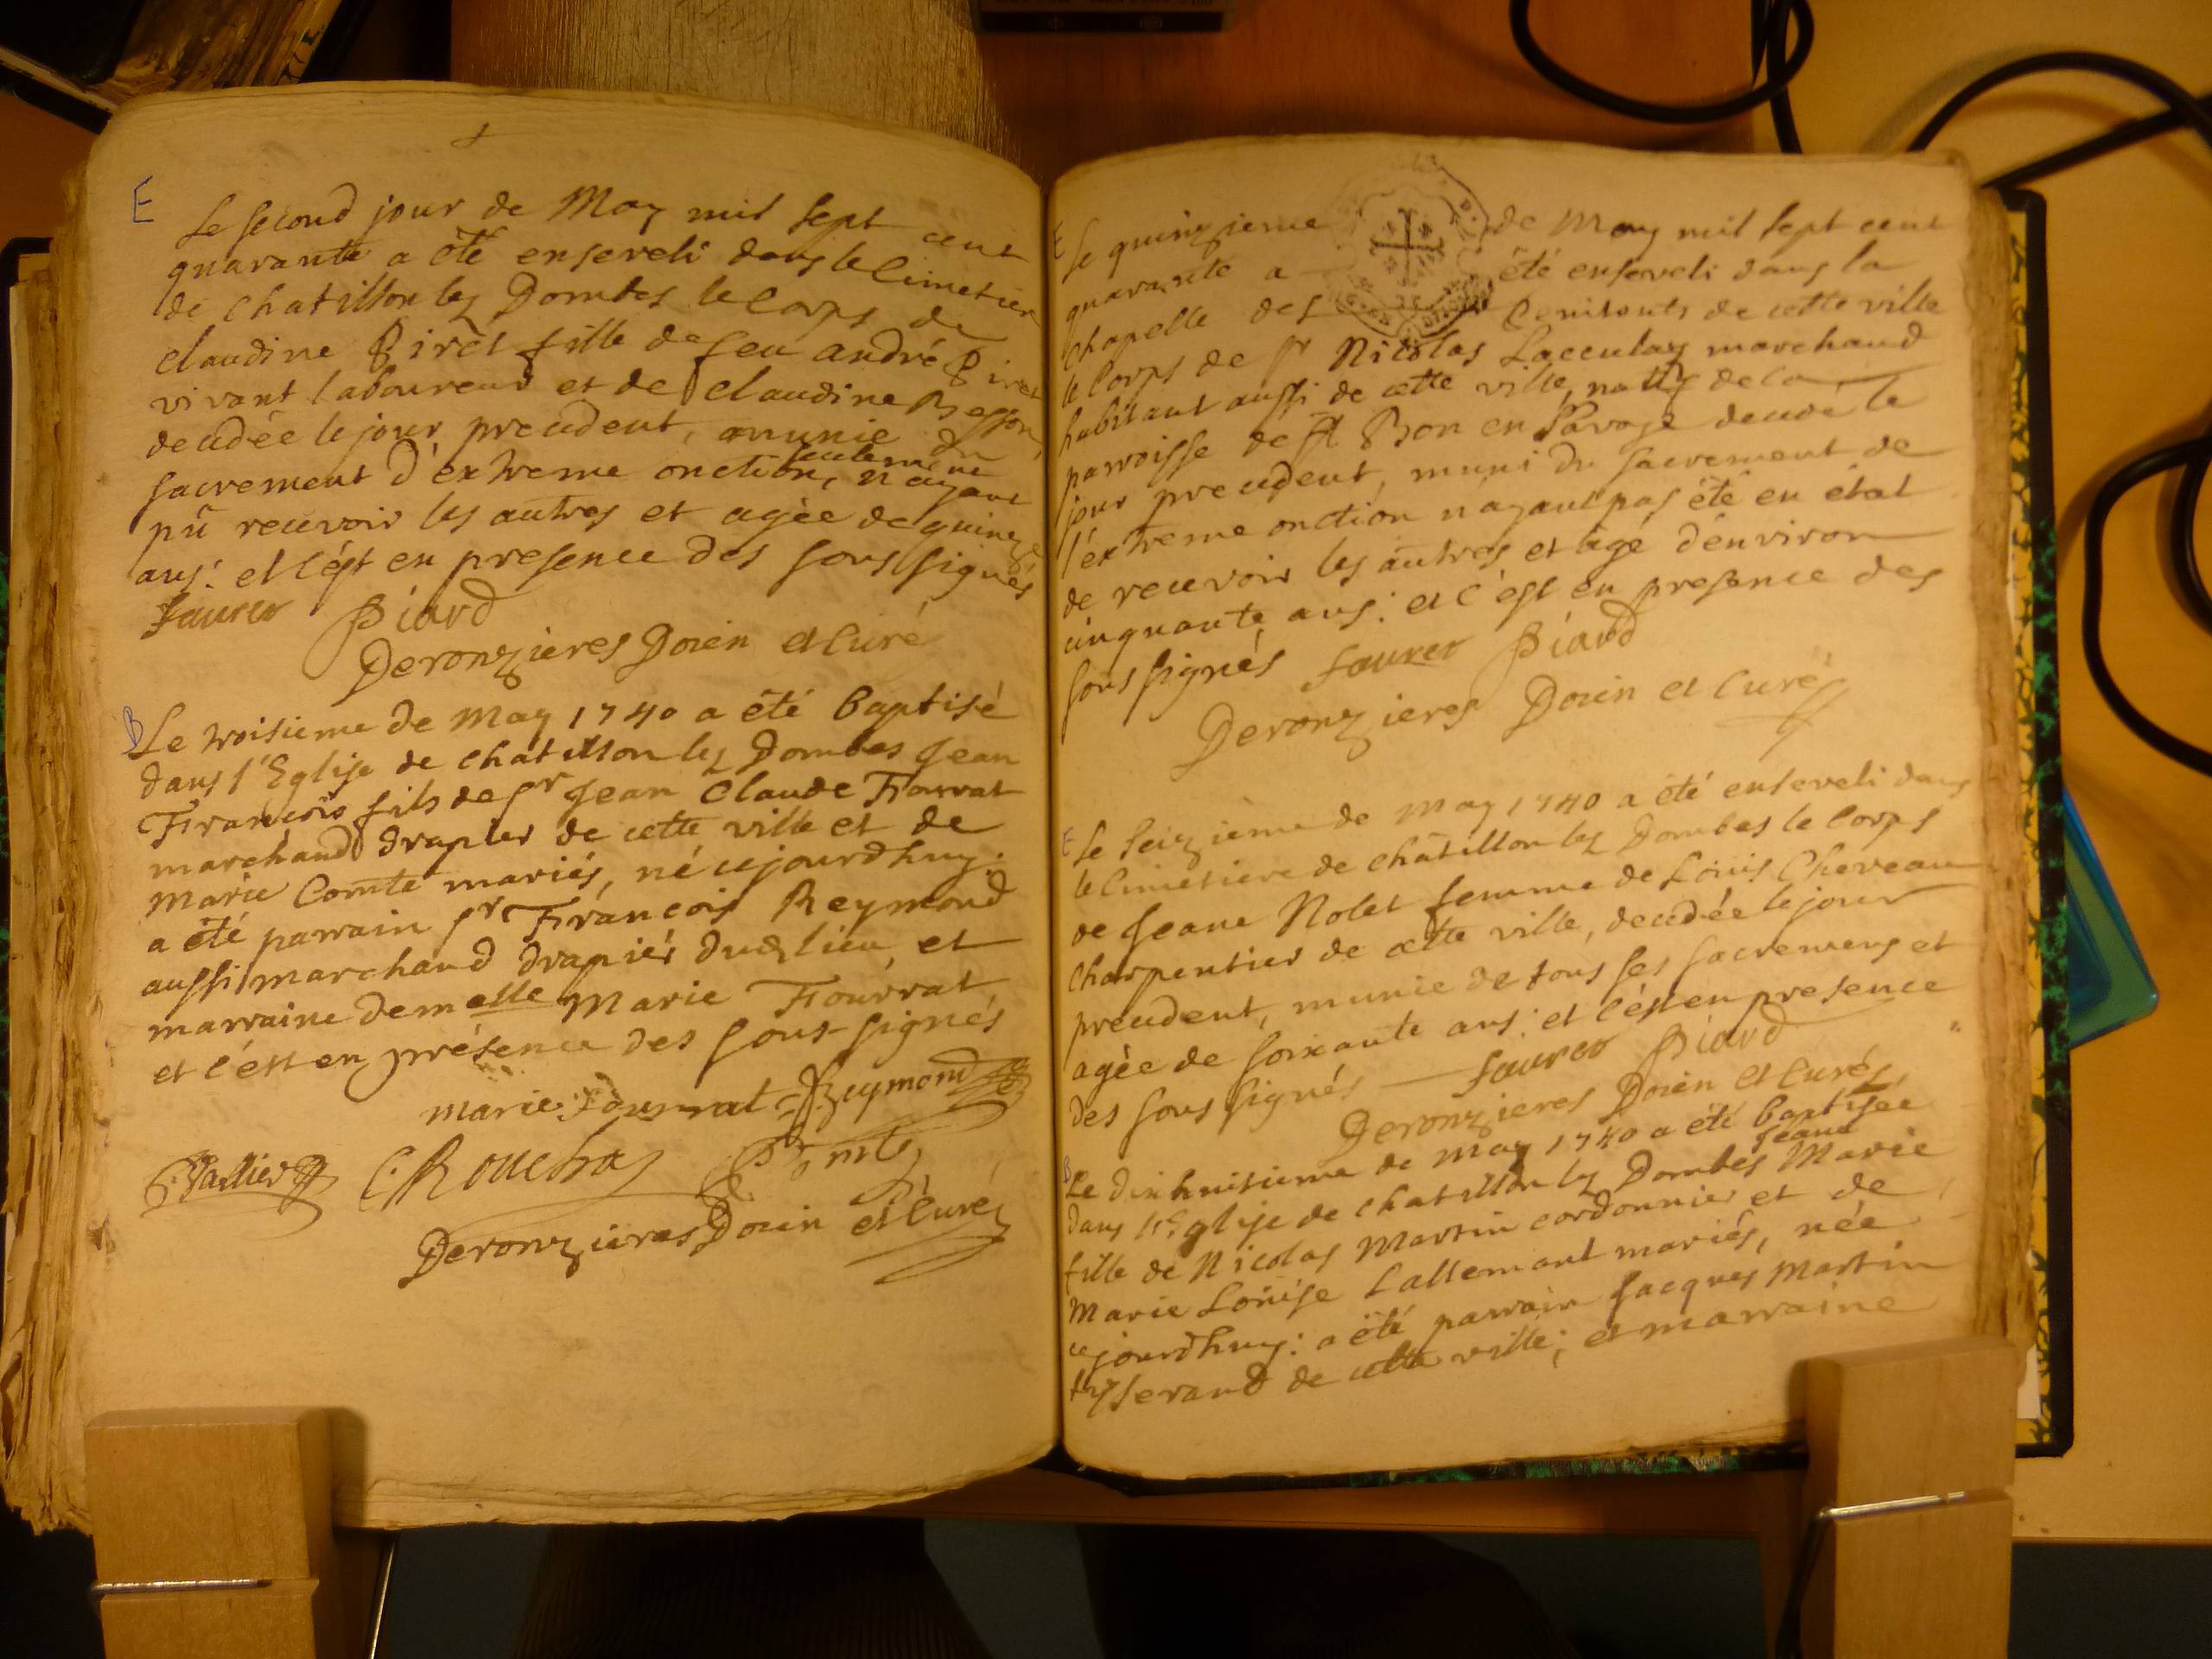 E
Le second jour de May mil sept cent
quarante a été enseveli dans le Cimetiere
de Chatillon lez Dombes le Corps de
Claudine Piret fille de feu andré Piret
vivant laboureur et de Claudine Besson,
decedée le jour precedent, munie du
seulement
sacrement d'extreme onction, n'ayant
pû recevoir les autres et agée de quinze
ans: et c'ést en presence des sous signés
faurer Piard
Deronzieres Doien et Curé
B
Le troisieme de May 1740 a été baptisé
dans l'Eglise de chatillon lez Dombes Jean
François fils de sr Jean Claude Fourrat
marchand drapier de cette ville et de
Marie Comte mariés, né cejourdhuy:
a été parrain sr François Reymond
aussi marchand drapier dud lieu, et
marraine demoelle Marie Fourrat
et c'ést en présence des sous-signés
marie fourrat Reymond
Vallier C Rouchas Comte
Deronzieres Doien et Curé
E
Le quinzieme de May mil sept cent
quarante a été enseveli dans la
Chapelle des Penitents de cette ville
le Corps de sr Nicolas marchand
habitant aussi de cette ville, natif de la
parroisse de st Bon en decedé le
jour precedent, muni du sacrement de
l'extreme onction n'ayant pas été en état
de recevoir les autres et agé d'environ
cinquante ans: et c'ést en presence des
sous signés faurer Piard
Deronzieres Doien et Curé
E
Le Seizieme de May 1740 a été enseveli dans
le Cimetiere de chatillon lez Dombes le Corps
de Jeane Nolet femme de Loüis Cheveau
Charpentier de cette ville, decedée le jour
precedent, munie de tous ses sacremens et
agée de soixante ans: et c'ést en presence
des sous signés faurer Piard
Deronzieres Doien et Curé
B
Le dixhuitieme de May 1740 a été baptisée
Jeane
dans l'Eglise de chatillon lez Dombes Marie
fille de Nicolas Martin cordonnier et de
Marie Loüise Lallemant mariés, née
cejourdhuy: a été parrain Jacques Martin
tysserand de cette ville; et marraine